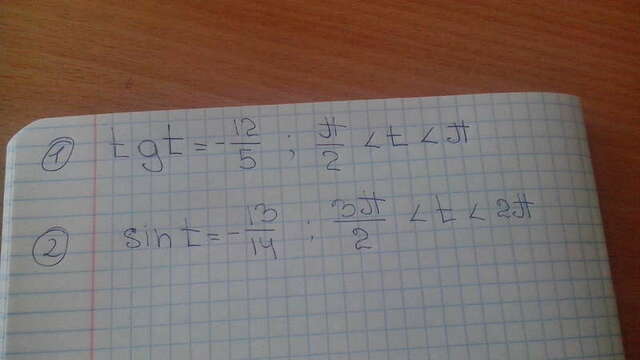 ① tgt = -12/5 ; π/2 < t < π
② sin t = -13/14 ; 3π/2 < t < 2π